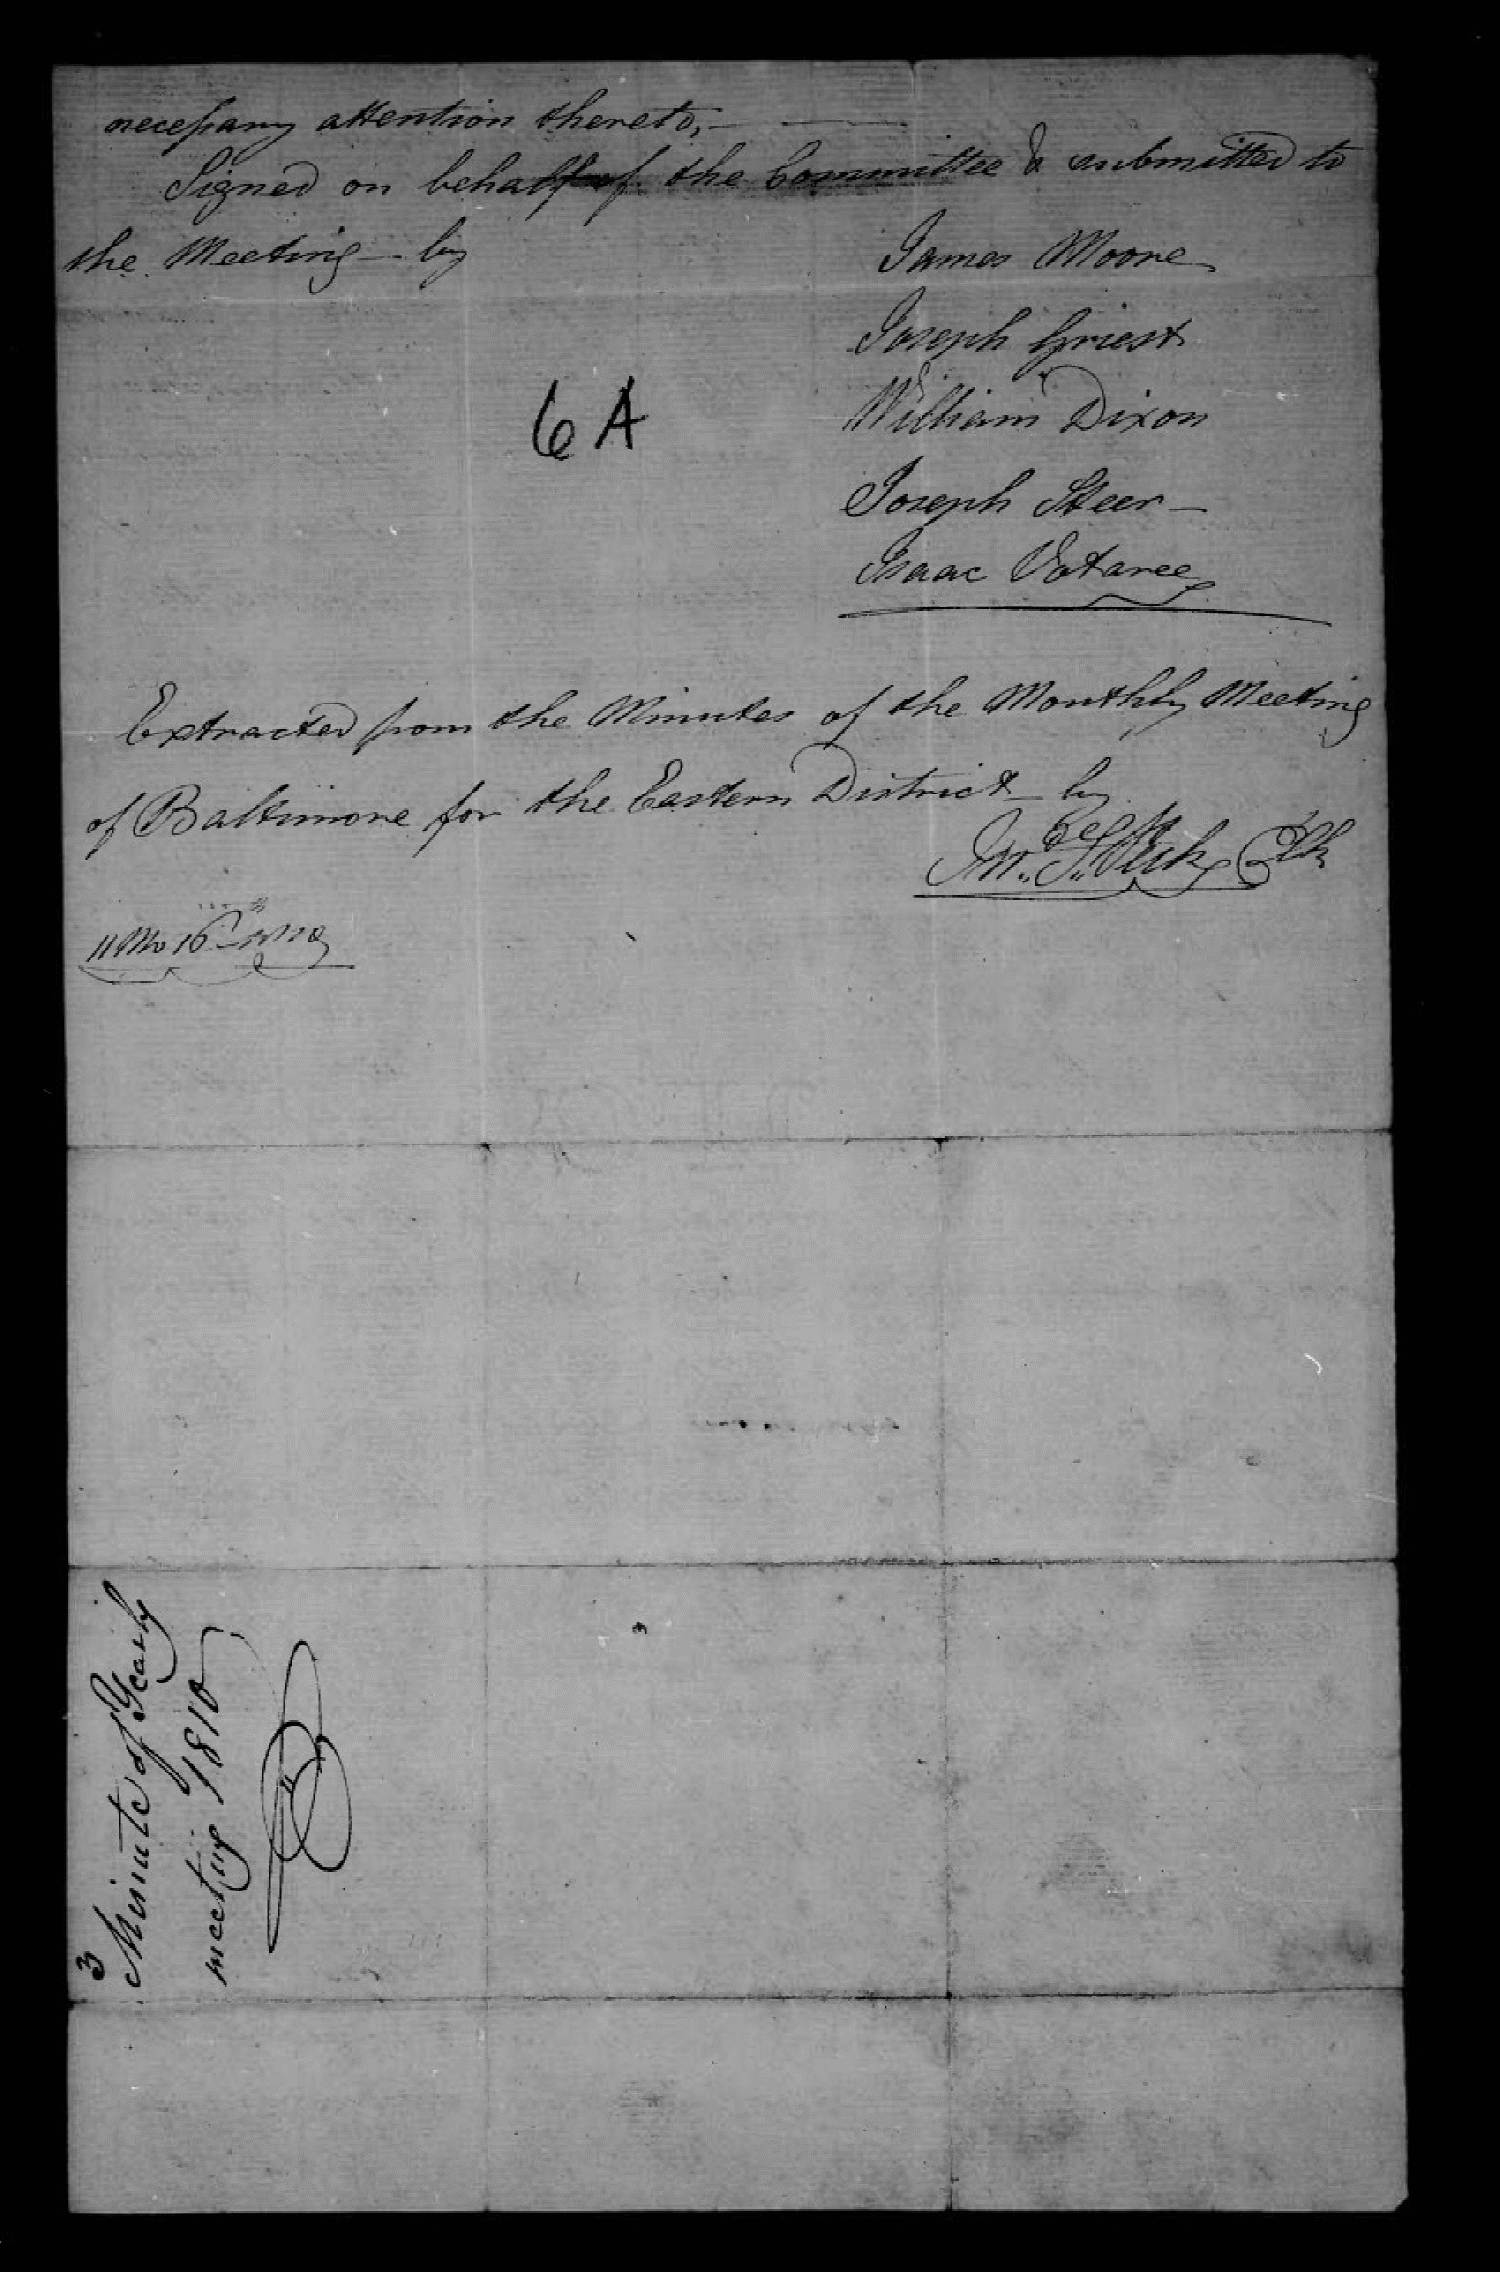 necessary attention thereto, —
Signed on behalf of the Committee & submitted to
the Meeting — by
James Moore
Joseph Griest
William Dixon
Joseph Steer —
Isaac Votaree
6A
Extracted from the Minutes of the Monthly Meeting
of Baltimore for the Eastern District — by
Jn..
11 Mo 16
3
Minute of Yearly
meeting 1810